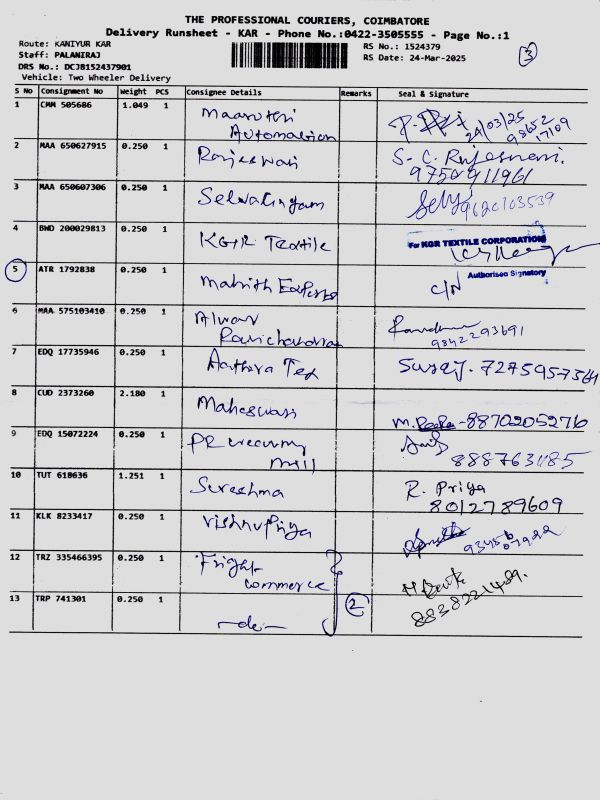 THE PROFESSIONAL COURIERS, COIMBATORE
Delivery Runsheet - KAR - Phone No.:0422-3505555 - Page No.:1
Route: KANIYUR KAR
RS No.: 1524379
3
Staff: PALANIRAJ
RS Date: 24-Mar-2025
DRS No.: DCJ8152437901
Vehicle: Two Wheeler Delivery
S No Consignment No Weight PCS Consignee Details Remarks Seal & Signature
1 CMM 505686 1.049 1 Maaruthi Automation 24/03/25 98652 17109
2 MAA 650627915 0.250 1 Rajeswari S. C. Rajeswari.
3 MAA 650607306 0.250 1 Selvalingam Selvi
4 BWD 200029813 0.250 1 KGR Textile For KGR TEXTILE CORPORATION
Authorised Signatory
5 ATR 1792838 0.250 1 Mahith Exports C/N
6 MAA 575103410 0.250 1 Alwar Ravichandran 9842293691
7 EDQ 17735946 0.250 1 Aathira Tex
8 CUD 2373260 2.180 1 Maheswari 8870205276
9 EDQ 15072224 0.250 1 PR mill 8887631185
10 TUT 618636 1.251 1 Sureshma R. Priya
8012789609
11 KLK 8233417 0.250 1 Vishnu Priya
12 TRZ 335466395 0.250 1 Fright commerce
13 TRP 741301 0.250 1 -do- 2